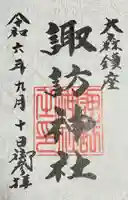 大森鎮座
諏訪神社
令和六年九月十日御参拝